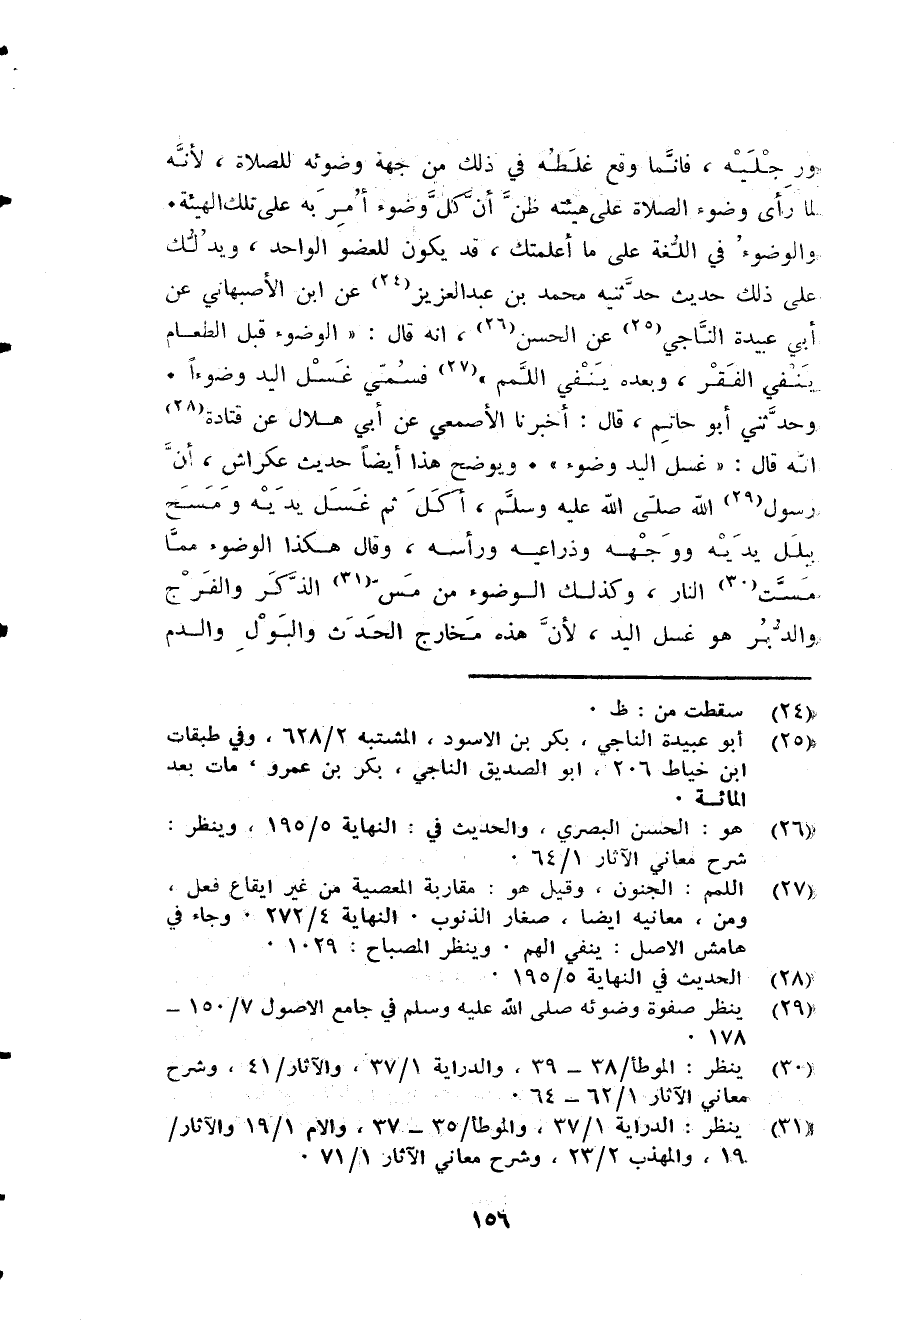 ورِجْلَيْه ، فانَّما وقع غلَطُه في ذلك من جهة وضوئه للصلاة ، لأنَّه
لما رأى وضوء الصلاة على هيئته ظنَّ أنَّ كلَّ وضوء أُمِرَ به على تلك الهيئة .
والوضوءُ في اللغة على ما أعلمتك ، قد يكون للعضو الواحد ، ويدلُك
على ذلك حديث حدَّثنيه محمد بن عبدالعزيز(٢٤) عن ابن الأصبهاني عن
أبي عبيدة النَّاجي(٢٥) عن الحسن(٢٦) ، انه قال : « الوضوء قبل الطعام
يَنْفي الفَقْر ، وبعده يَنْفي اللَّمم »(٢٧) فسُمّي غَسْل اليد وضوءاً .
وحدَّثني أبو حاتم ، قال : أخبرنا الأصمعي عن أبي هلال عن قتادة(٢٨)
انَّه قال : « غسل اليد وضوء » . ويوضح هذا أيضاً حديث عكراش ، أنَّ
رسول(٢٩) الله صلَّى الله عليه وسلَّم ، أكَلَ ثم غَسَل يدَيْه وَمَسَح
ببلَل يدَيْه ووَجْهه وذراعيه ورأسه ، وقال هكذا الوضوء ممَّا
مَسَّت(٣٠) النار ، وكذلك الوضوء من مَسّ(٣١) الذَّكَر والفَرْج
والدُّبُر هو غسل اليد ، لأنَّ هذه مَخارج الحَدَث والبَوْل والدم
(٢٤) سقطت من : ظ .
(٢٥) أبو عبيدة الناجي ، بكر بن الاسود ، المشتبه ٦٢٨/٢ ، وفي طبقات
ابن خياط ٢٠٦ ، ابو الصديق الناجي ، بكر بن عمرو ، مات بعد
المائة .
(٢٦) هو : الحسن البصري ، والحديث في : النهاية ١٩٥/٥ ، وينظر :
شرح معاني الآثار ٦٤/١ .
(٢٧) اللمم : الجنون ، وقيل هو : مقاربة المعصية من غير ايقاع فعل ،
ومن ، معانيه ايضا ، صغار الذنوب . النهاية ٢٧٢/٤ . وجاء في
هامش الاصل : ينفي الهم . وينظر المصباح : ١٠٢٩ .
(٢٨) الحديث في النهاية ١٩٥/٥ .
(٢٩) ينظر صفوة وضوئه صلى الله عليه وسلم في جامع الاصول ١٥٠/٧ ــ
١٧٨ .
(٣٠) ينظر : الموطأ/٣٨ ــ ٣٩ ، والدراية ٣٧/١ ، والآثار/٤١ ، وشرح
معاني الآثار ٦٢/١ ــ ٦٤ .
(٣١) ينظر : الدراية ٣٧/١ ، والموطأ/٣٥ ــ ٣٧ ، والام ١٩/١ والآثار/
١٩ ، والمهذب ٢٣/٢ ، وشرح معاني الآثار ٧١/١ .
١٥٦